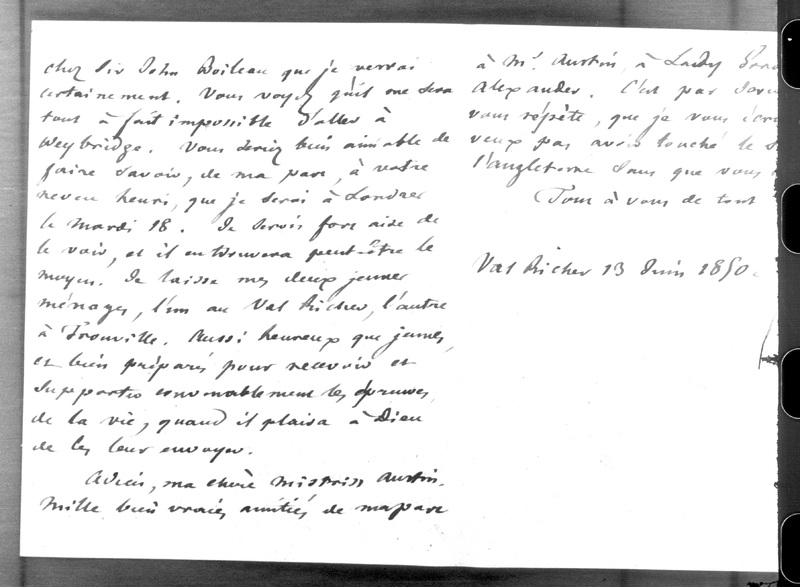 chez Sir John Boileau que je verrai
certainement. Vous voyez qu'il me sera
tout à fait impossible d'aller à
Weybridge. Vous seriez bien aimable de
faire savoir, de ma part, à votre
neveu henri, que je serai à Londres
le mardi 18. Je serois fort aise de
le voir, et il en trouvera peut-être le
moyen. Je laisse mes deux jeunes
ménages, l'un au Val Richer, l'autre
à Trouville. Aussi heureux que jeunes,
et bien préparés pour recevoir et
supporter convenablement les épreuves
de la vie, quand il plaira à Dieu
de les leur envoyer.
Adieu, ma chère Mistriss Austin.
Mille bien vraies amitiés de ma part
à Mr. Austin, à Lady
Alexander. C'est par
vous répète, que je vous
veux pas avoir touché le
l'angleterre sans que vous
Tout à vous de tout
Val Richer 13 Juin 1850